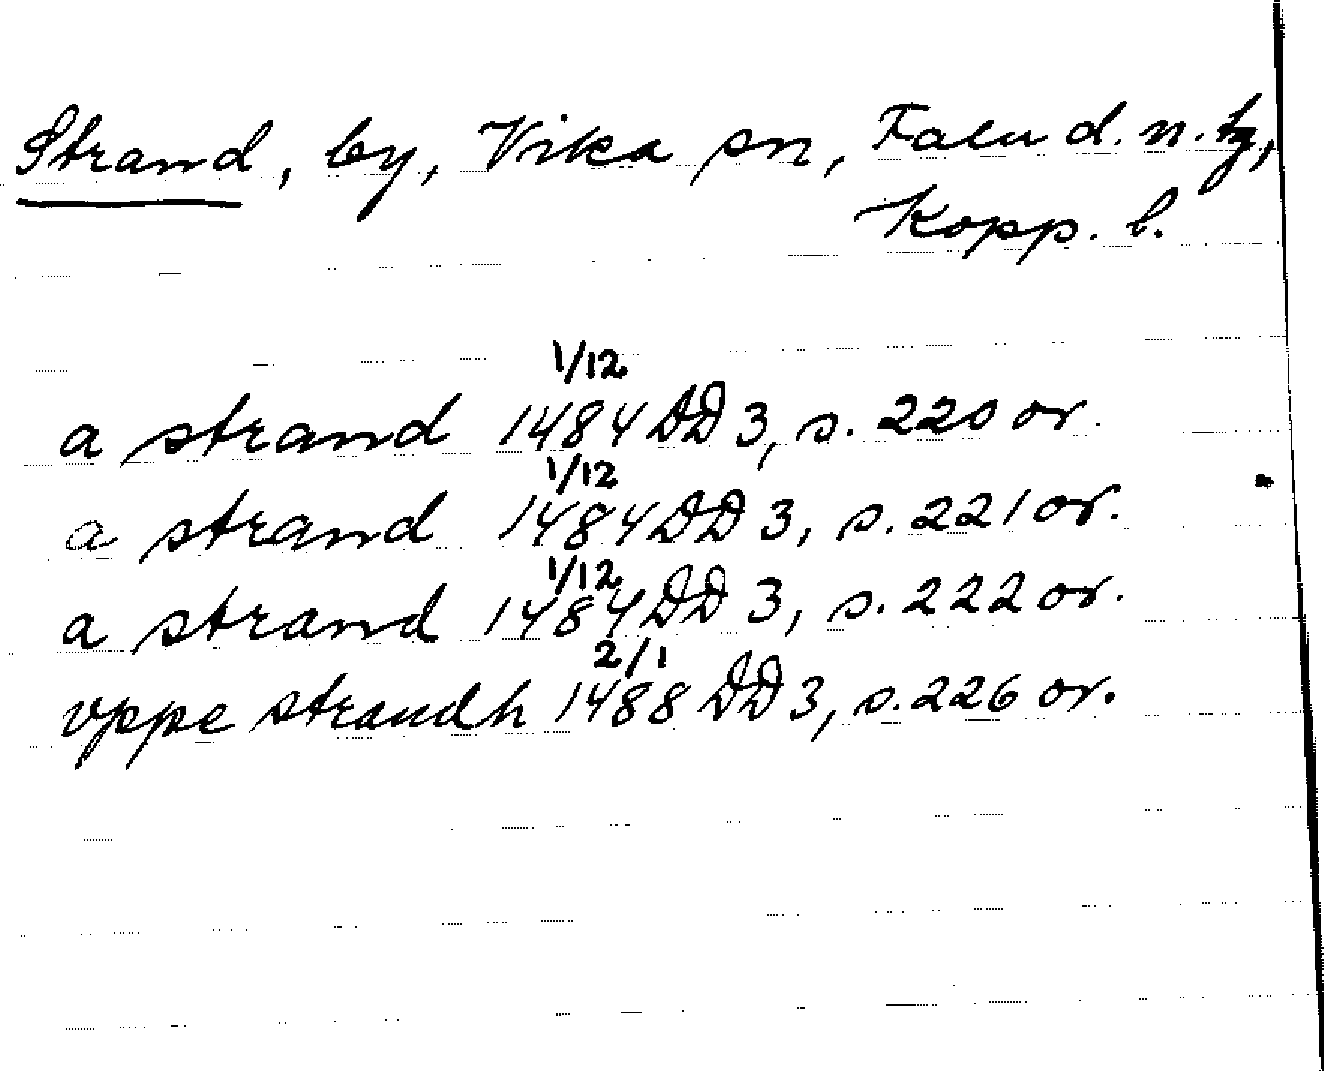 Strand, by, Vika sn, Falu d. n. tg,
Kopp. l.
1/12
a strand 1484 DD 3, s. 220 or.
1/12
a strand 1484 DD 3, s. 221 or.
1/12
a strand 1484 DD 3, s. 222 or.
2/1
vppe strandh 1488 DD 3, s. 226 or.